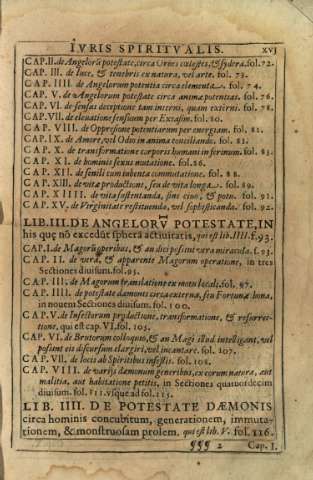 IVRIS SPIRITVALIS. xvj
CAP. II. de Angelorū potestate, circa Orbes cœlestes, & sydera. fol. 72.
CAP. III. de luce, & tenebris ex natura, vel arte. fol. 73.
CAP. IIII. de Angelorum potentia circa elementa. fol. 74.
CAP. V. de Angelorum potestate circa animæ potentias. fol. 76.
CAP. VI. de sensus deceptione tam interni, quam externi. fol. 78.
CAP. VII. de eleuatione sensuum per Extasim. fol. 80.
CAP. VIII. de Oppressione potentiarum per energiam. fol. 81.
CAP. IX. de Amore, vel Odio in anima conciliando. fol. 82.
CAP. X. de transformatione corporis humani in ferinum. fol. 83.
CAP. XI. de hominis sexus mutatione. fol. 86.
CAP. XII. de senili cum iuuenta commutatione. fol. 88.
CAP. XIII. de vitæ productione, seu de vita longa. fol. 89.
CAP. XIIII. de vita sustentanda, sine cibo, & potu. fol. 91.
CAP. XV. de Verginitate restituenda, vel sophisticanda. fol. 92.
LIB. III. DE ANGELORV̄ POTESTATE, IN
his quę nō excedūt spherā actiuitatis, qui est lib. IIII. f. 93.
CAP. I. de Magorū operibus, & an dici possint vera miracula. f. 93
CAP. II. de vera, & apparente Magorum operatione, in tres
Sectiones diuisum. fol. 95.
CAP. III. de Magorum translatione ex motu locali. fol. 97.
CAP. IIII. de potestate dæmonis circa externa, seu Fortunæ bona,
in nouem Sectiones diuisum. fol. 100.
CAP. V. de Insectorum productione, transformatione, & resurrectione,
qui est cap. VI. fol. 105.
CAP. VI. de Brutorum colloquio, & an Magi illud intelligant, vel
possint eis discursum elargiri, vel incantare. fol. 107.
CAP. VII. de locis ab Spiritibus infestis. fol. 108.
CAP. VIII. de varijs dæmonum generibus, ex eorum natura, aut
malitia, aut habitatione petitis, in Sectiones quatuordecim
diuisum. fol. 111. vsque ad fol. 115.
LIB. IIII. DE POTESTATE DÆMONIS
circa hominis concubitum, generationem, immutationem,
& monstruosam prolem. qui est lib. V. fol. 116.
¶¶¶ 2 Cap. I.